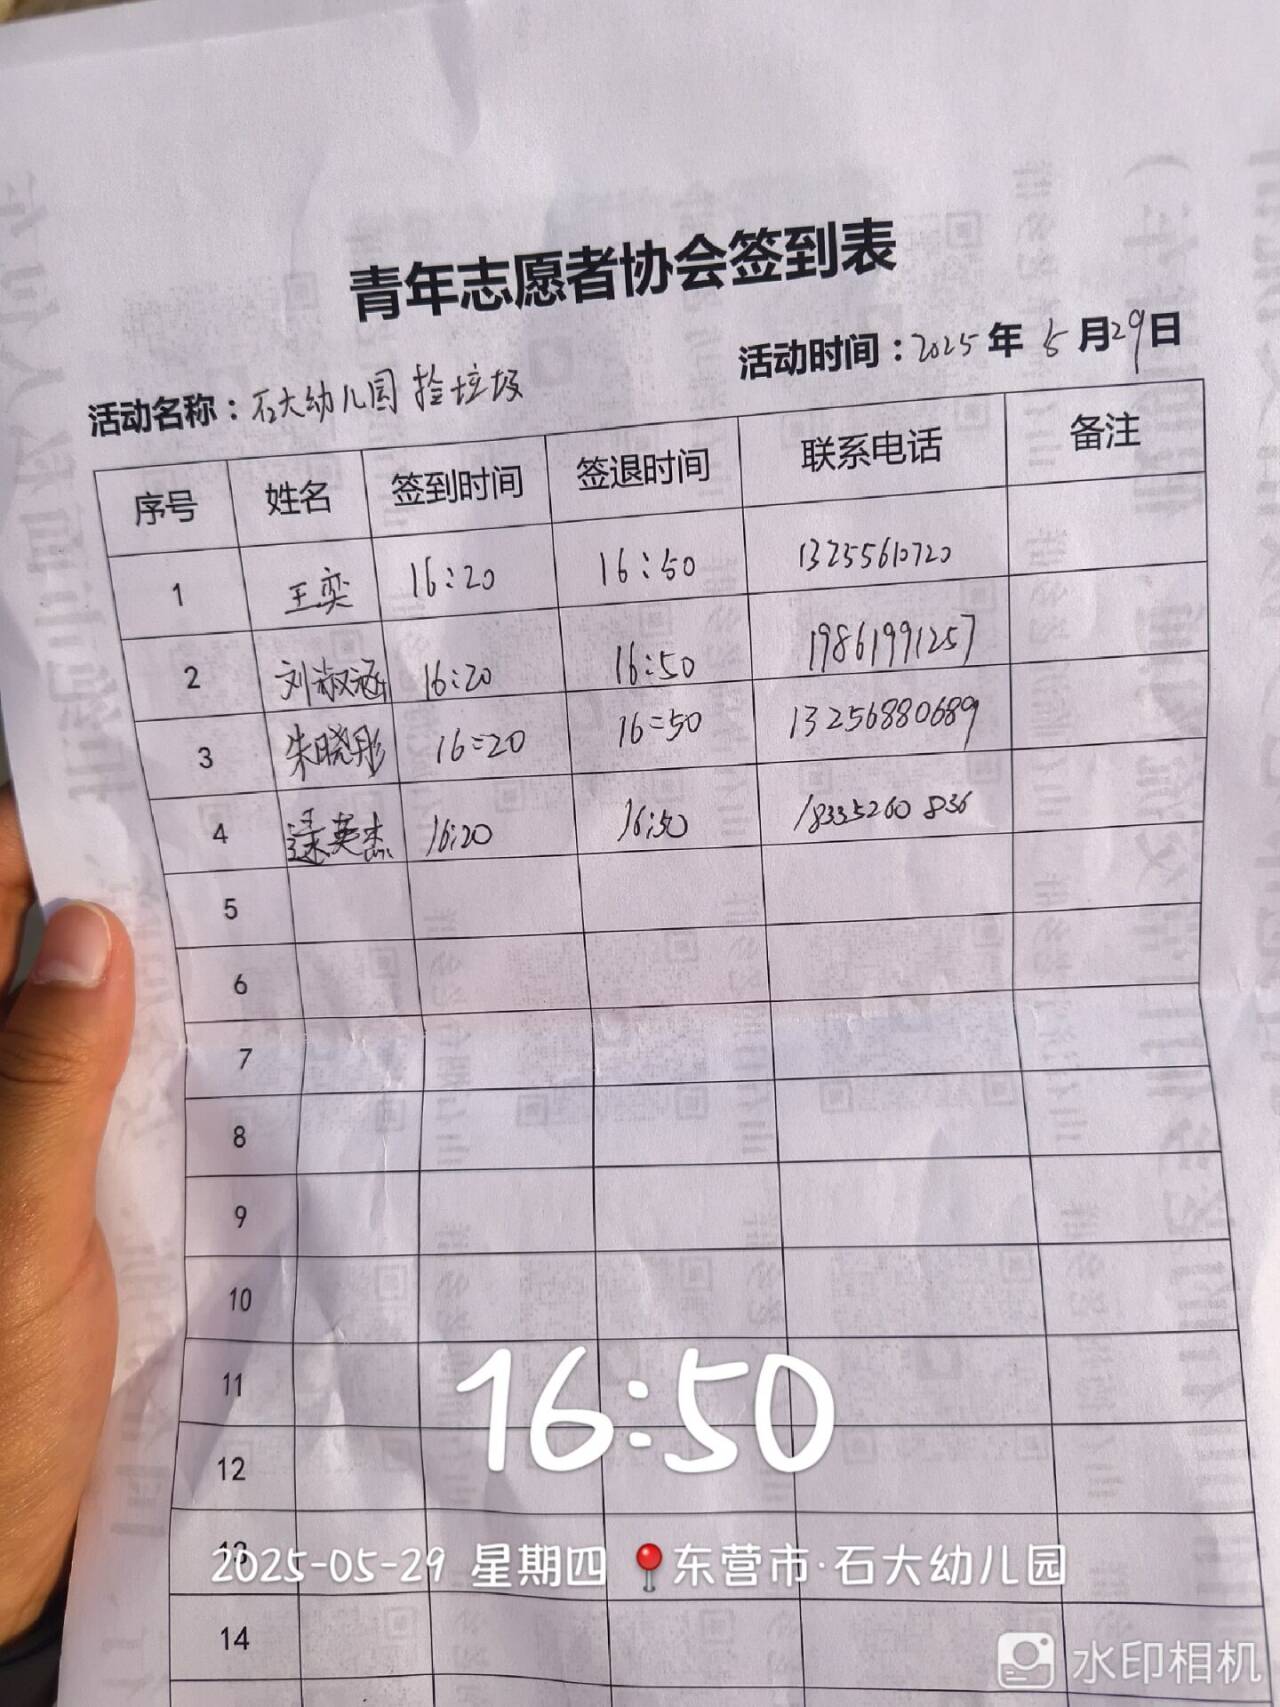 青年志愿者协会签到表
活动名称：石大幼儿园捡垃圾 活动时间：2025年5月29日
序号 姓名 签到时间 签退时间 联系电话 备注
1 王奕 16:20 16:50 13255610720
2 刘淑涵 16:20 16:50 19861991257
3 朱晓彤 16:20 16:50 13256880689
4 逯英杰 16:20 16:50 18335260836
5
6
7
8
9
10
11
16:50
12
13
2025-05-29 星期四 东营市·石大幼儿园
14
水印相机